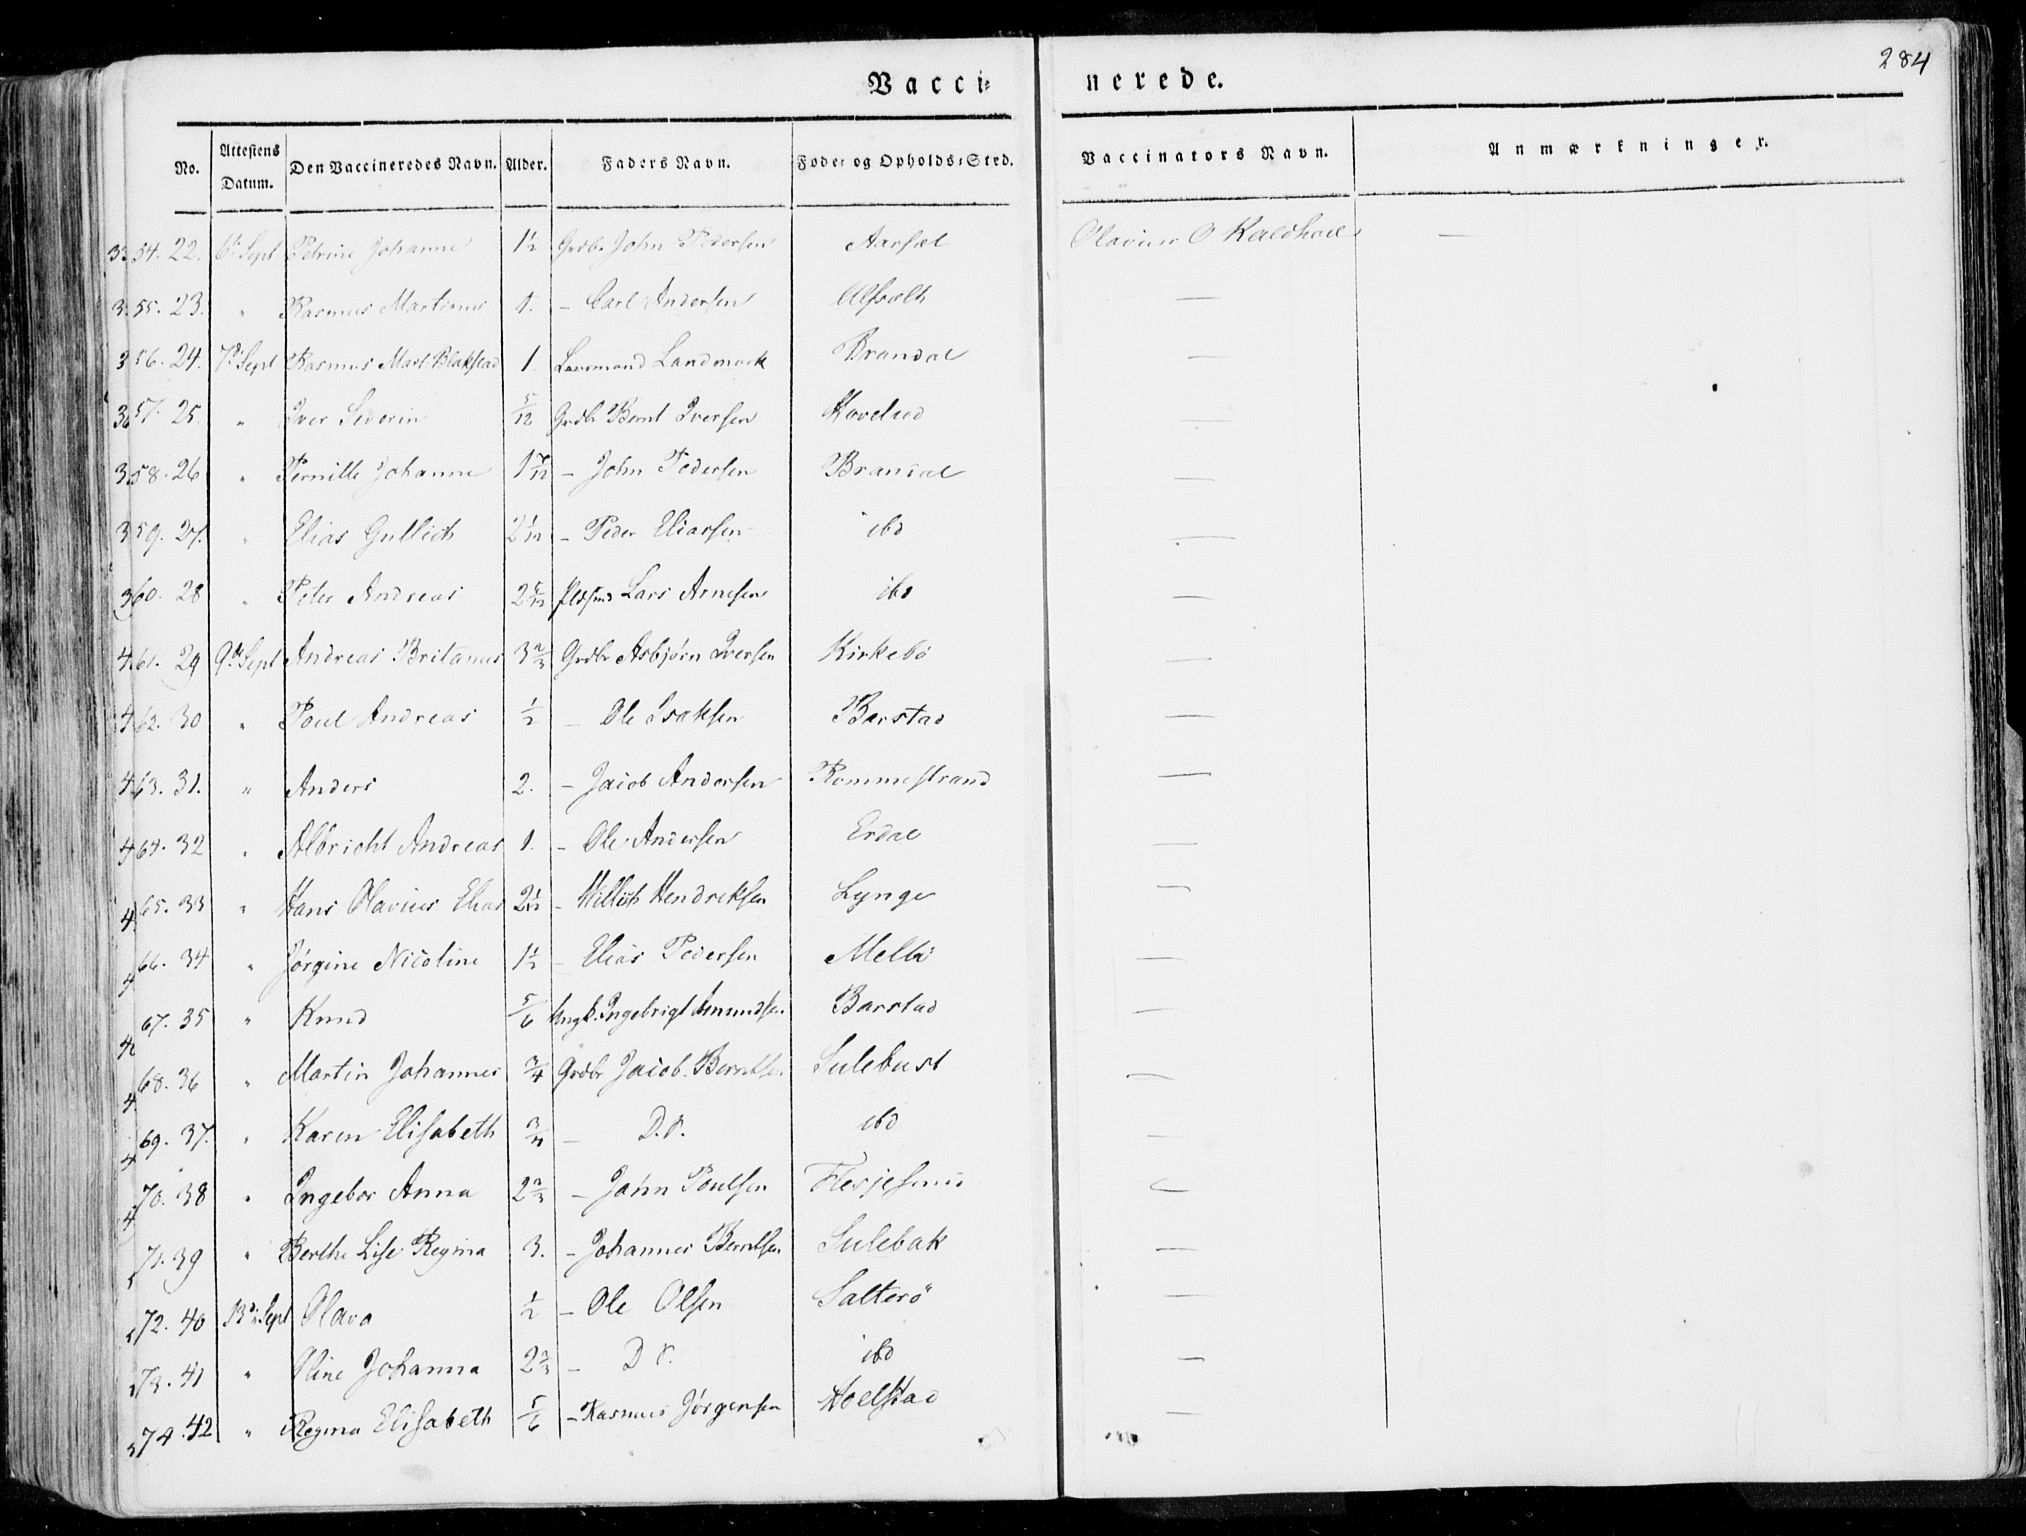 284
Vacci= nerede.
No. Attestens Datum. Den Vaccineredes Navn. Alder. Faders Navn. Føde= og Opholds=Sted. Vaccinators Navn. Anmærkninger.
54. 22. 6te Sept Petrine Johanne 1½ Grdbr John Pedersen Aarsæt Olavius O Kaldhoel —
55. 23. " Rasmus Martinus 1. - Carl Andersen —
56. 24. 7de Sept Rasmus Mart: Blakstad 1. Landmark Brandal —
57. 25. " Iver Severin 5/12 Grdbr Bernt Iversen —
58. 26 " Pernille Johanne 1 7/12 - John Pedersen Brandal —
59. 27. " Elias Gullich 2 1/12 - Peder Eliassen ibd —
60. 28 " Peter Andreas 2 5/12 Lars Arnesen ibd —
61. 29 9de Sept Andreas Britanus 3 2/3 Grdbr Asbjørn Iversen Kirkebö —
62. 30 " Poul Andreas ½ - Ole Isaksen Barstad —
63. 31. " Anders 2. - Jacob Andersen Rommestrand —
64. 32 " Albricht Andreas 1. - Ole Andersen Erdal —
65. 33 " Hans Olavius Elias 2 1/12 - Hendreksen Lynge —
66. 34 " Jørgine Nicoline 1½ - Elias Pedersen Melbö —
67. 35 " Knud 5/6 Ungk. Ingebrigt Amundsen Barstad —
68. 36 " Martin Johannes ¾ Grdbr Jacob Berntsen Sulebust —
69. 37. " Karen Elisabeth ¾ - D.o. ibd —
70. 38 " Ingebor Anna 2 2/3 - John Poulsen —
71. 39 " Berthe Lise Regina 3. - Johannes Berntsen Sulebak —
72. 40 13de Sept Olava ½ - Ole Olsen Salterö —
73. 41 " Oline Johanna 2 2/3 - D o. ibd —
74. 42 " Regina Elisabeth 5/6 - Rasmus Jørgensen Hoelstad —